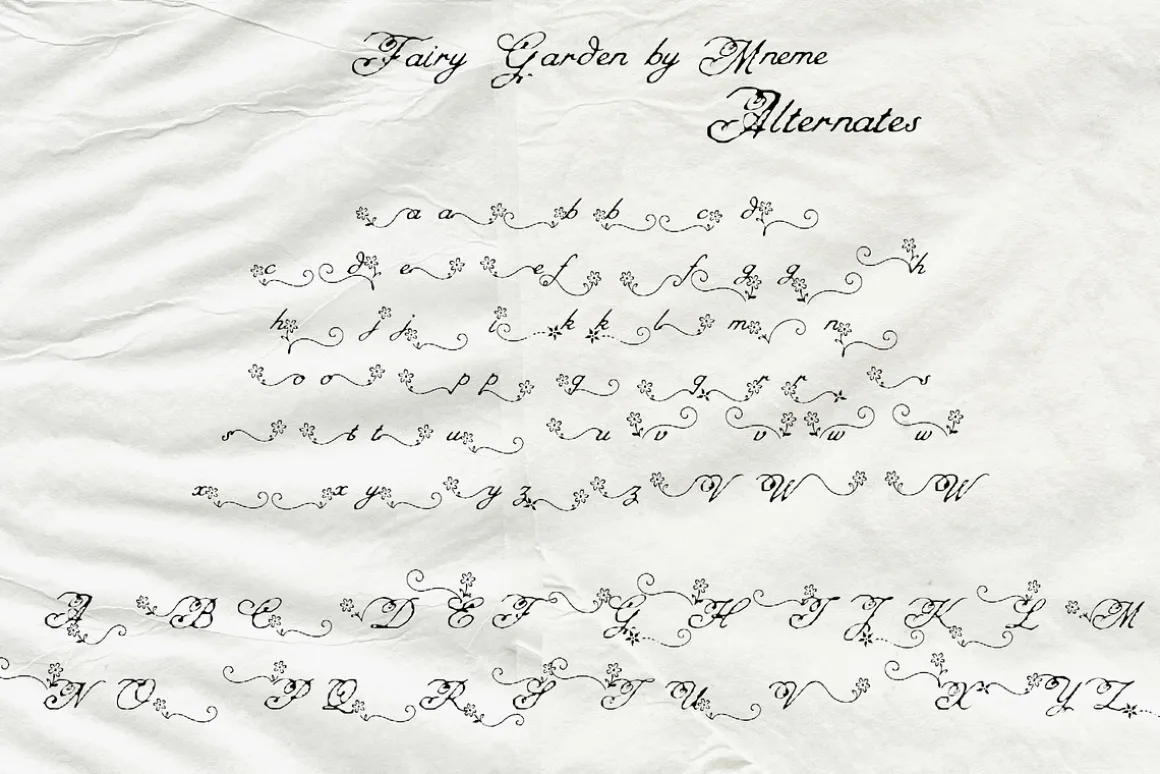 Fairy Garden by Mneme
Alternates
a a b b c d
c d e e f f g g h
h j j i k k l m n
o o p p q q r r s
s t t u u v v w w
x x y y z z V W W
A B C D E F G H I J K L M
N O P Q R S T U V X Y Z